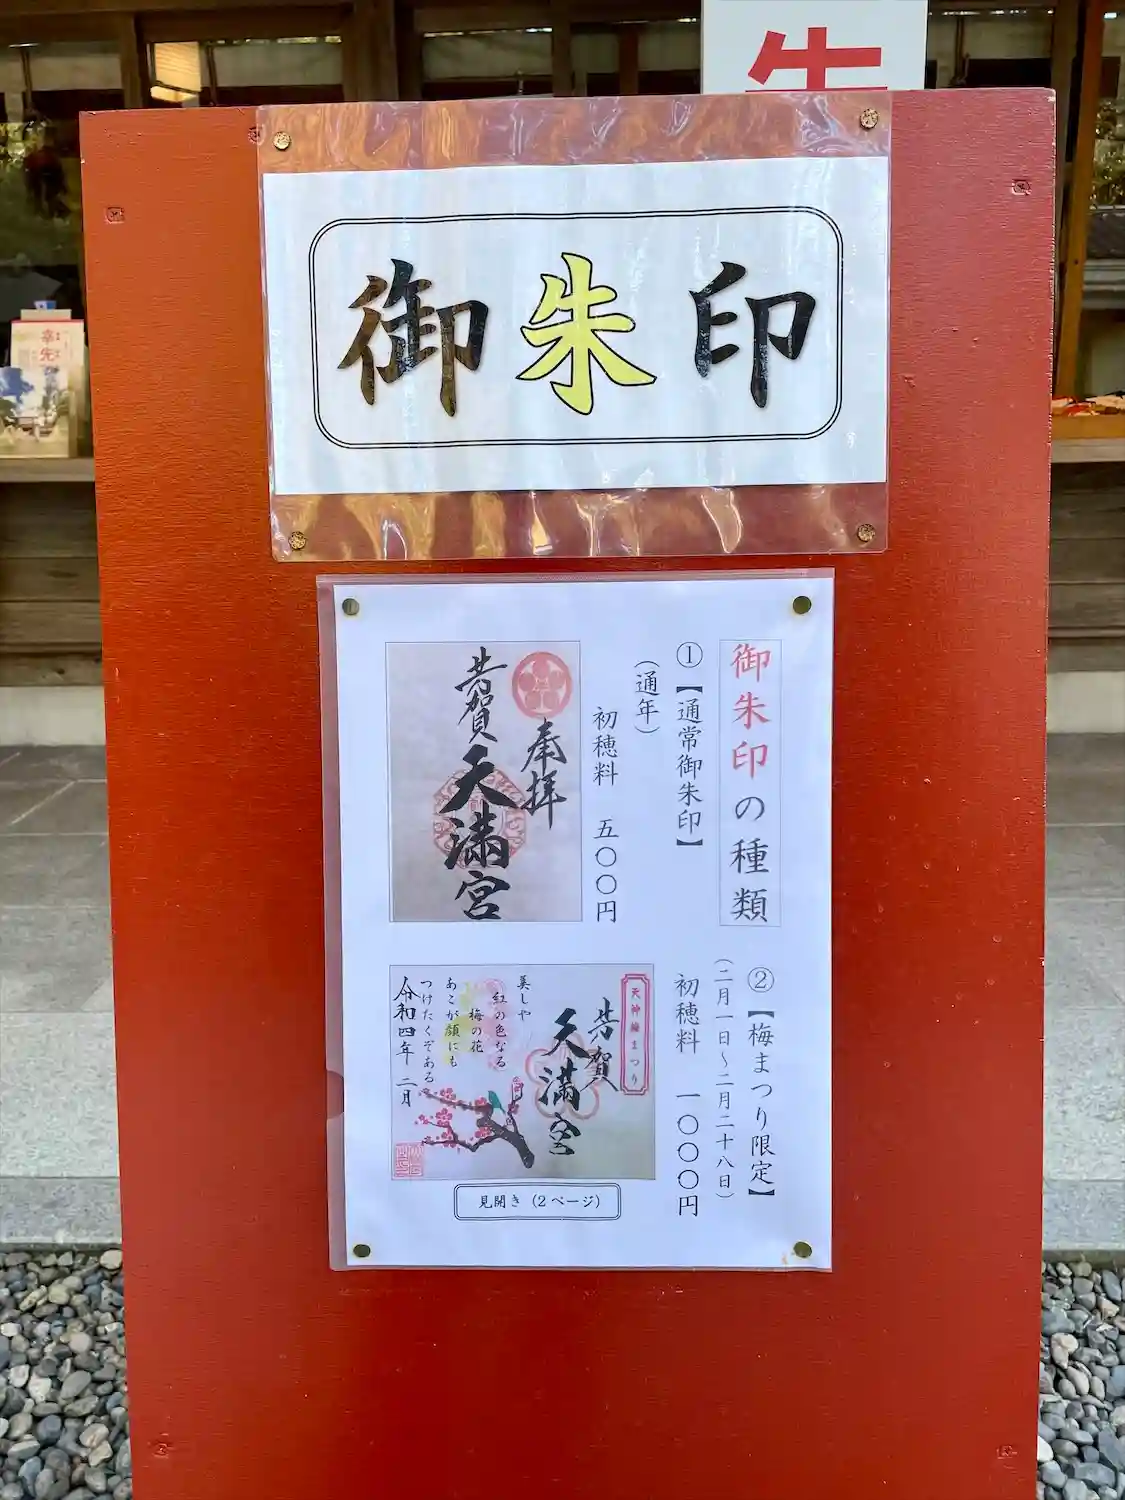 御朱印
御朱印の種類
①【通常御朱印】
(通年)
初穂料 五〇〇円
奉拝
芳賀天満宮
②【梅まつり限定】
(二月一日~二月二十八日)
初穂料 一〇〇〇円
天神梅まつり
芳賀
天満宮
美しや
紅の色なる
梅の花
あこが顔にも
つけたくぞある
令和四年 二月
見開き(2ページ)
幸先